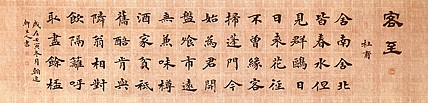 客至
杜甫
舍南舍北
皆春水但
見群鷗日
日來花徑
不曾緣客
掃蓬門今
始為君開
盤飧市遠
無兼味樽
酒家貧祇
舊醅肯與
鄰翁相對
飲隔籬呼
取盡餘杯
壬寅冬月